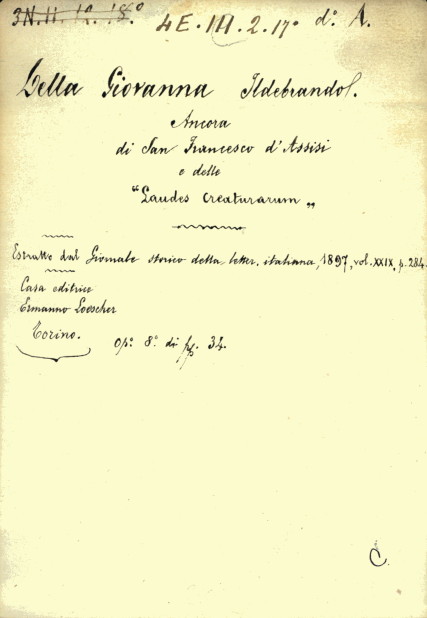 3N.II.12.18.º 4E.III.2.17º dº. A.
Della Giovanna Ildebrando.
Ancora
di San Francesco d'Assisi
e delle
"Laudes Creaturarum„
Estratto dal Giornale storico della letter. italiana, 1897, vol. XXIX, p. 284.
Casa editrice
Ermanno Loescher
Torino.
opº. 8º di pp. 34.
C.